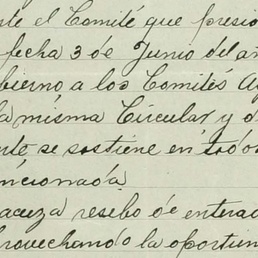 nte el Comité que presio
fecha 3 de Junio del añ
bierno a los Comités Ag
la misma Circular y d
ento se sostiene en todos
encionada.
acuza resebo de enterad
provechando la oportun